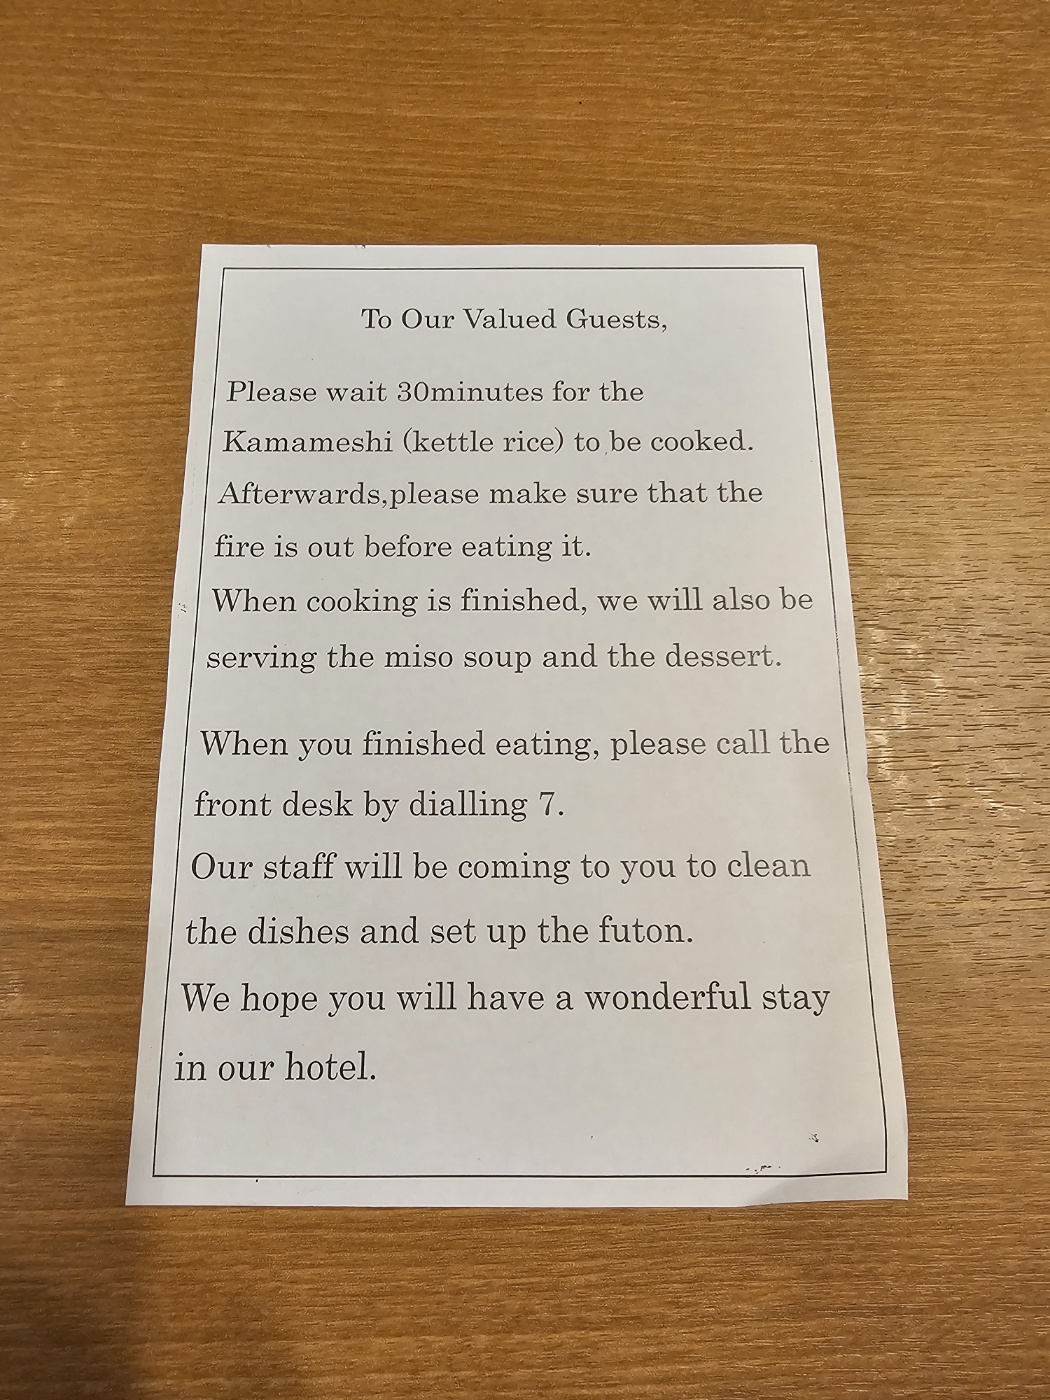 To Our Valued Guests,
Please wait 30minutes for the
Kamameshi (kettle rice) to be cooked.
Afterwards,please make sure that the
fire is out before eating it.
When cooking is finished, we will also be
serving the miso soup and the dessert.
When you finished eating, please call the
front desk by dialling 7.
Our staff will be coming to you to clean
the dishes and set up the futon.
We hope you will have a wonderful stay
in our hotel.